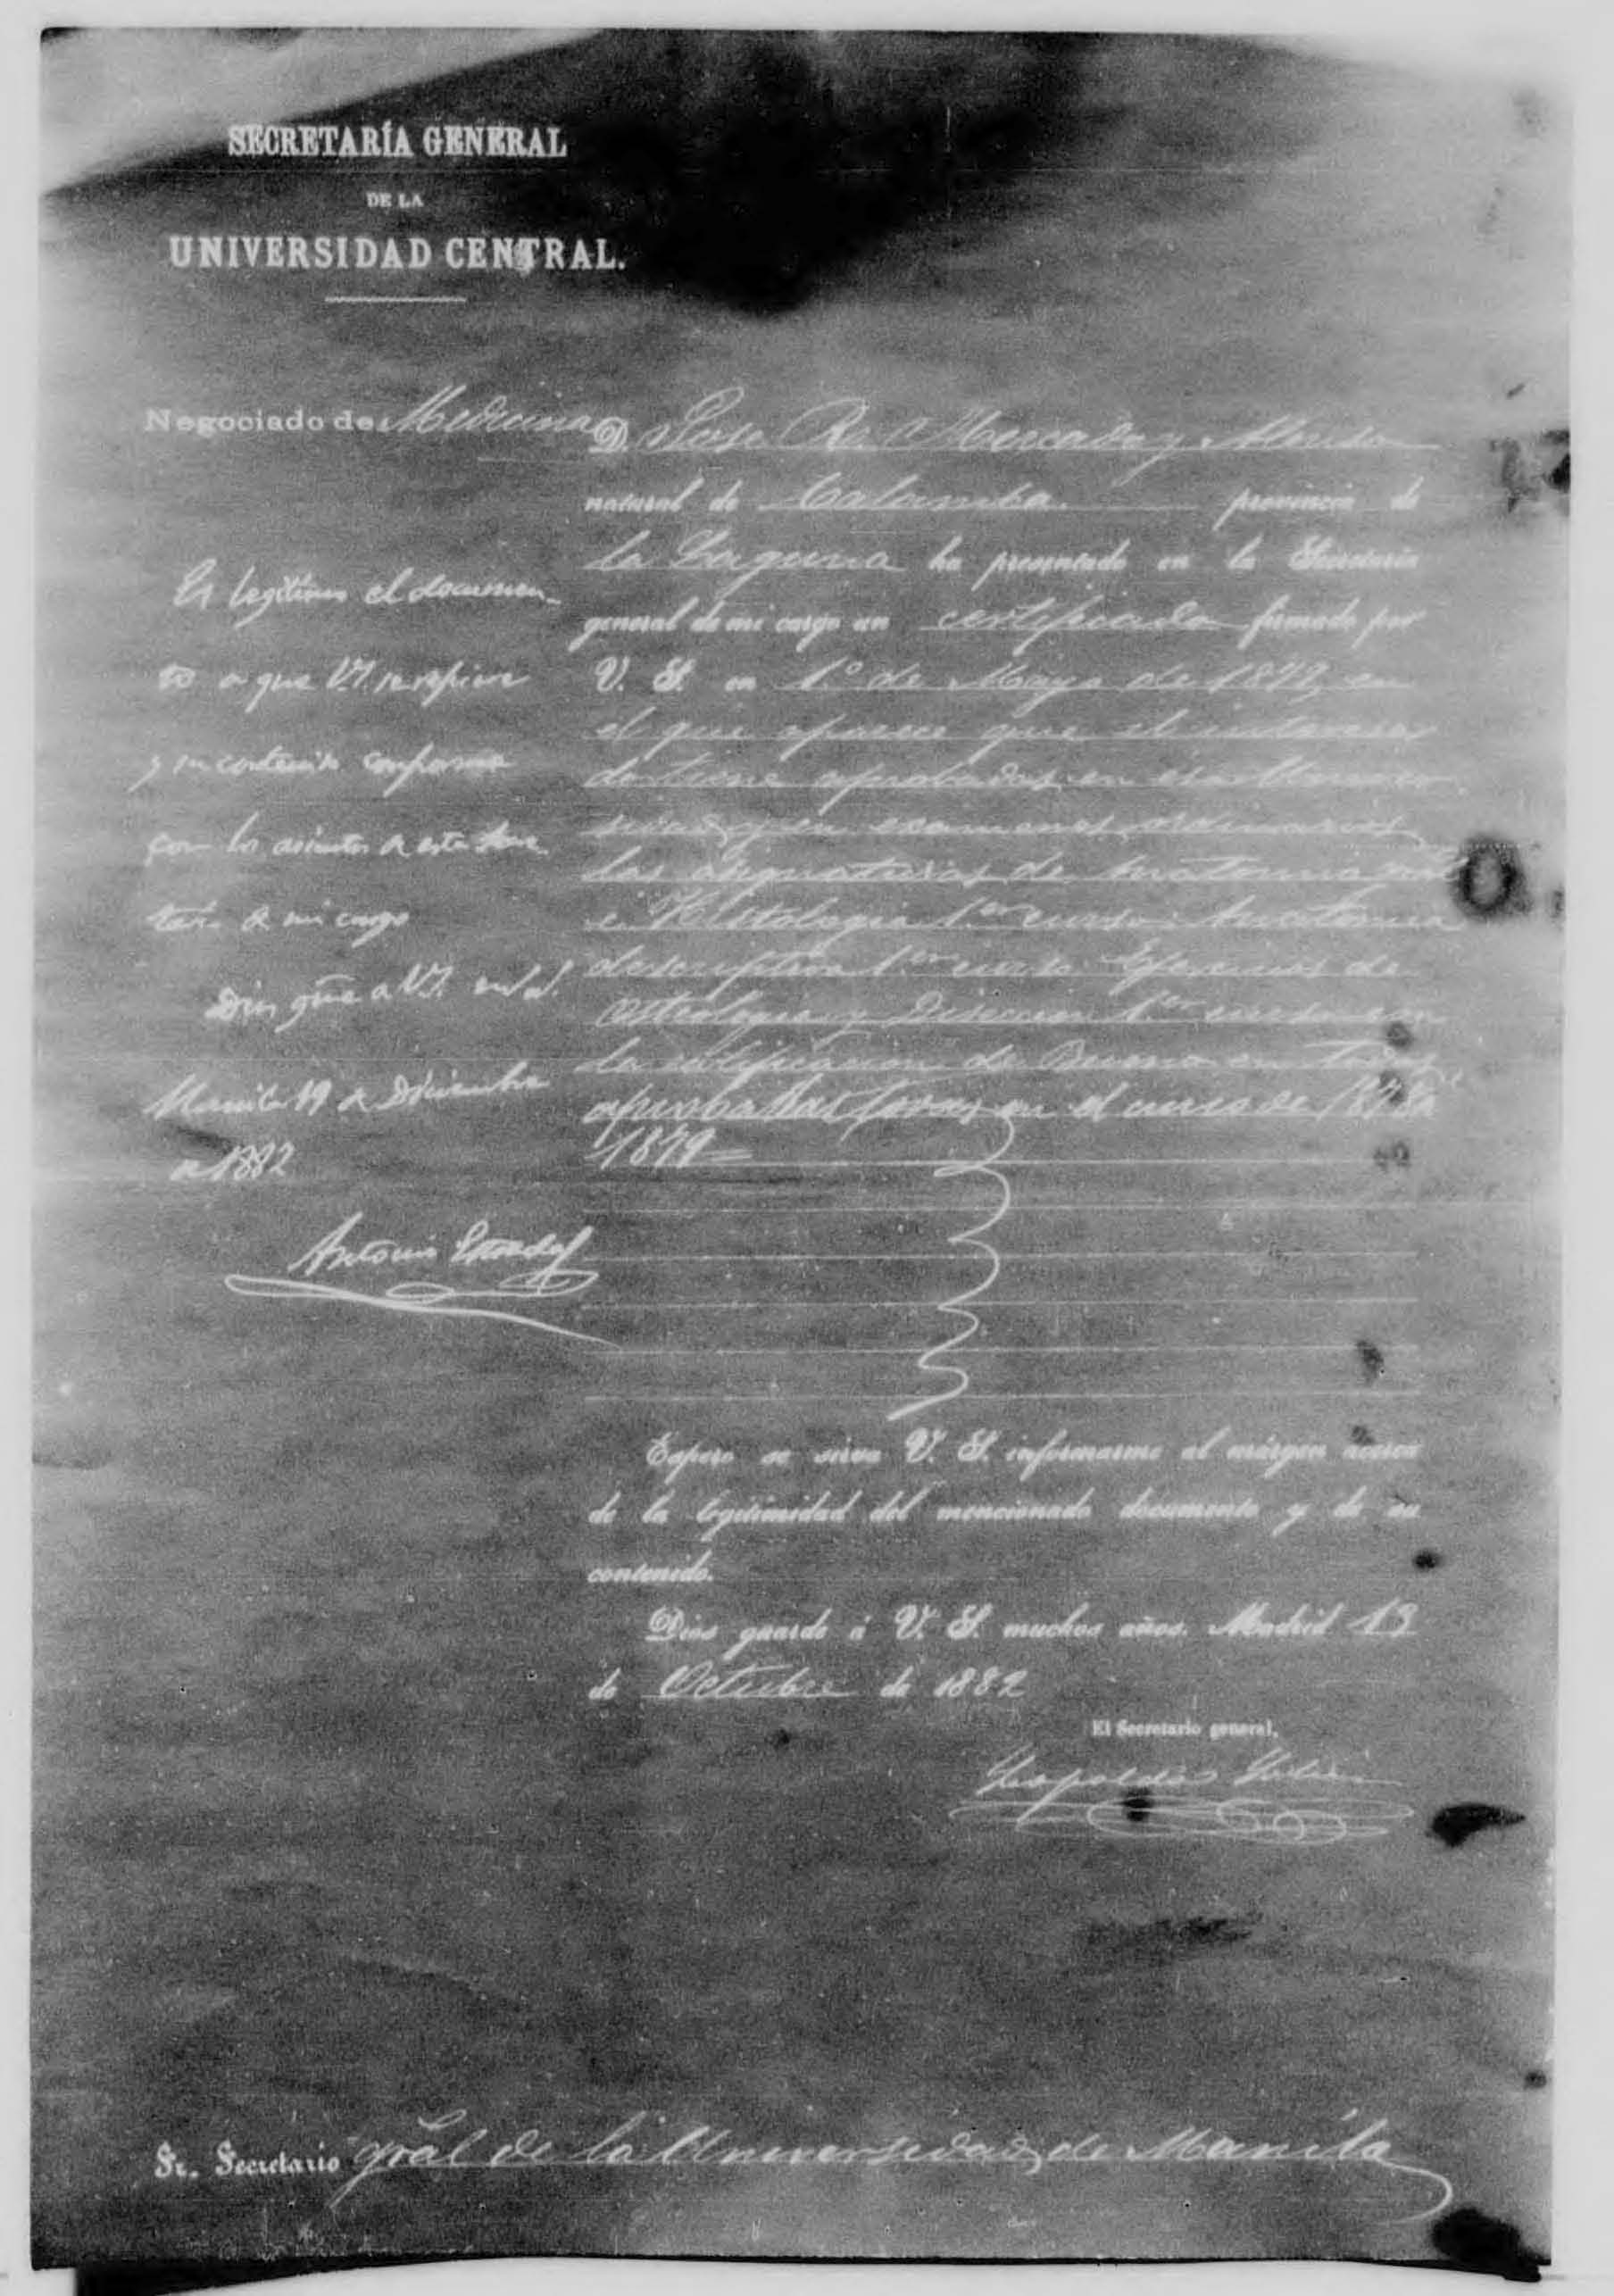 SECRETARÍA GENERAL
DE LA
UNIVERSIDAD CENTRAL.
Negociado de Medicina
D. Jose R. Mercado y Alonso
natural de Calamba. provincia de
la Laguna ha presentado en la Secretaría
general de mi cargo un certificado firmado por
V. S. en 1.º de Mayo de en
el que aparece que el interesa
do tiene aprobadas en esa Univer
sidad y en examenes ordinarios
las asignaturas de Anatomia
e Histologia 1.er curso Anatomia
descriptiva 1.er curso Ejercicios de
Osteologia y Diseccion 1.er curso con
la calificacion de Bueno en todas
aprobadas en el curso de 1878 a
1879
Espero se sirva V. S. informarme al márgen acerca
de la legitimidad del mencionado documento y de su
contenido.
Dios guarde á V. S. muchos años. Madrid 13
de Octubre de 1882
El Secretario general,
Leopoldo
Es legitimo el documen-
to a que V.S. se refiere
y su contenido conforme
con los asientos de esta Secre-
tará de mi cargo
Dios gūe a V.S. m.s a.s
Manila 19 de Diciembre
de 1882
Antonio
Sr. Secretario gral de la Universidad de Manila